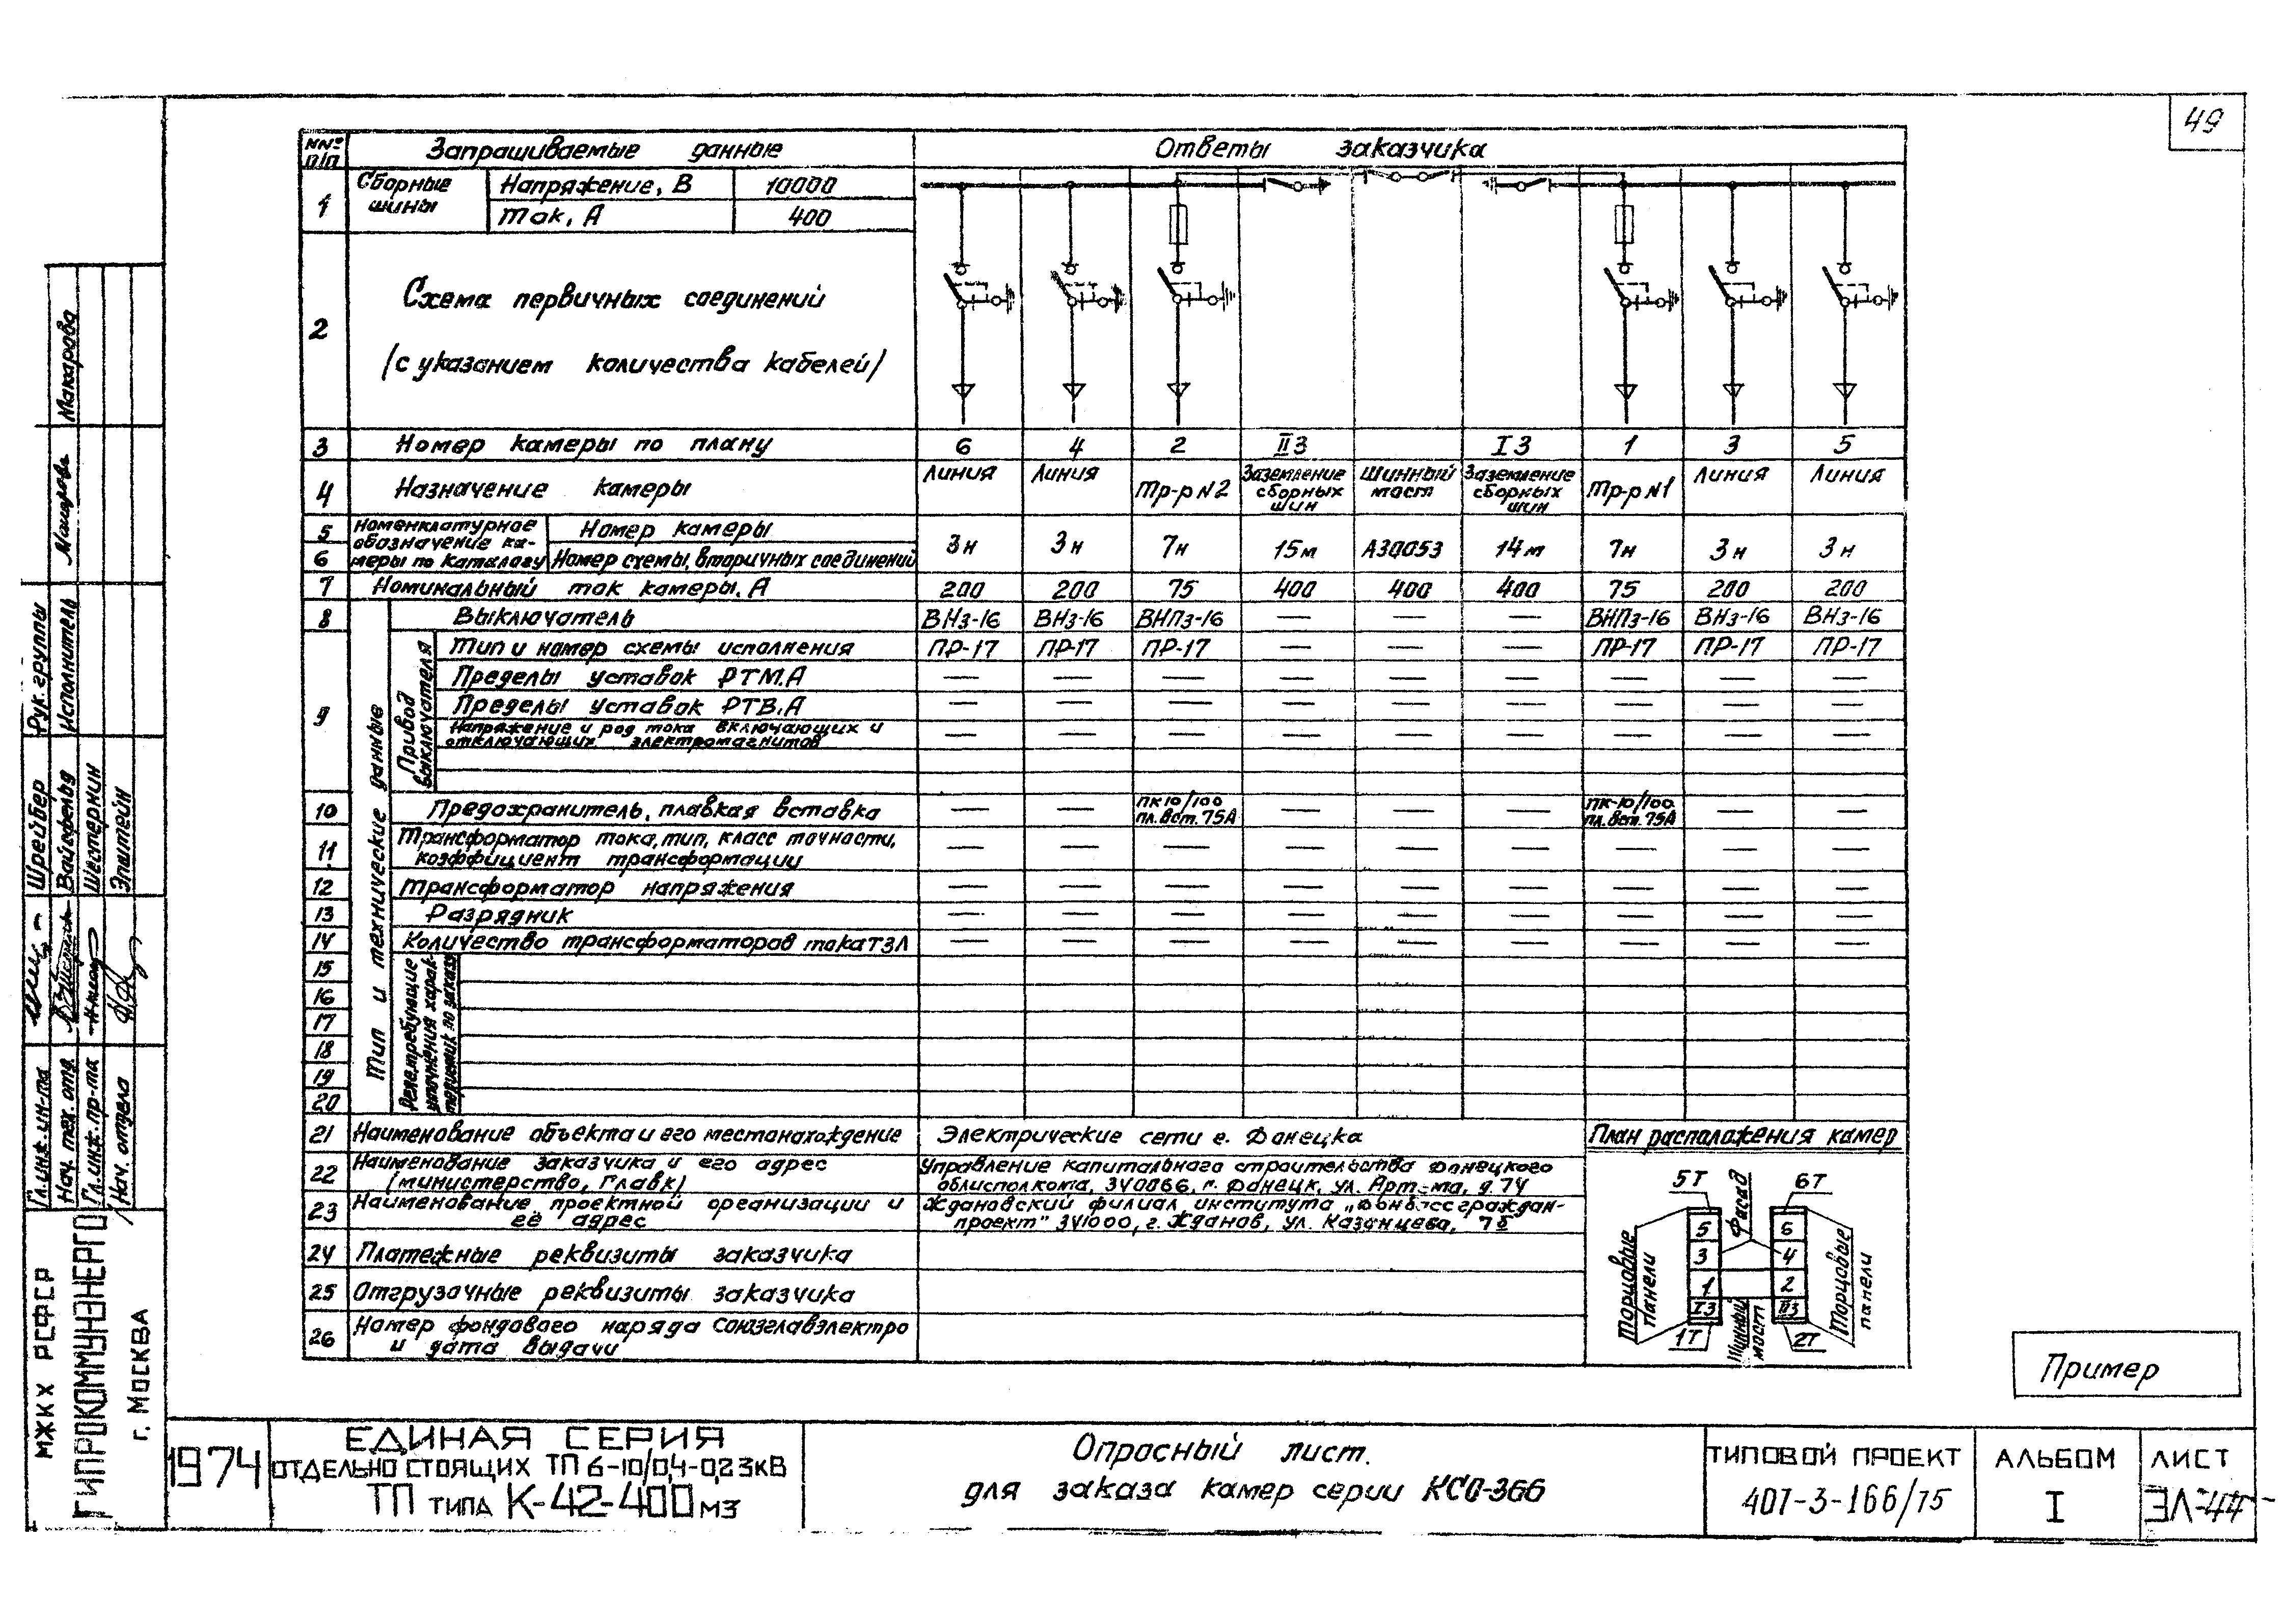 49
NN№ п/п
Запрашиваемые данные
Ответы заказчика
1
Сборные шины
Напряжение, В
10000
Ток, А
400
2
Схема первичных соединений
(с указанием количества кабелей)
3 Номер камеры по плану 6 4 2 II З I З 1 3 5
4 Назначение камеры Линия Линия Тр-р N2 Заземление сборных шин Шинный мост Заземление сборных шин Тр-р N1 Линия Линия
Номенклатурное обозначение камеры по каталогу
5 Номер камеры
6 Номер схемы вторичных соединений
3н 3н 7н 15м А30053 14м 7н 3н 3н
7 Номинальный ток камеры, А 200 200 75 400 400 400 75 200 200
Тип и технические данные
8 Выключатель ВНз-16 ВНз-16 ВНПз-16 — — — ВНПз-16 ВНз-16 ВНз-16
9
Привод выключателя
Тип и номер схемы исполнения ПР-17 ПР-17 ПР-17 — — — ПР-17 ПР-17 ПР-17
Пределы уставок РТМ.А — — — — — — — — —
Пределы уставок РТВ.А — — — — — — — — —
Напряжение и род тока включающих и отключающих электромагнитов — — — — — — — — —
10 Предохранитель, плавкая вставка — — ПК10/100 пл. вст. 75А — — — ПК-10/100 пл. вст. 75А — —
11 Трансформатор тока, тип, класс точности, коэффициент трансформации — — — — — — — — —
12 Трансформатор напряжения — — — — — — — — —
13 Разрядник — — — — — — — — —
14 Количество трансформаторов тока ТЗЛ — — — — — — — — —
Реле, требующие уточнения характеристик по заказу
15
16
17
18
19
20
21 Наименование объекта и его местонахождение
Электрические сети г. Донецка
22 Наименование заказчика и его адрес
(министерство, главк)
Управление капитального строительства Донецкого
облисполкома, 340066, г. Донецк, ул. Арт-ма, д. 74
23 Наименование проектной организации и
её адрес
Ждановский филиал института „Донбассграждан-
проект" 341000, г. Жданов, ул. Казанцева, 7б
24 Платежные реквизиты заказчика
25 Отгрузочные реквизиты заказчика
26 Номер фондового наряда Союзглавэлектро
и дата выдачи
План расположения камер
5Т
6Т
Фасад
Торцовые панели
5
3
1
I З
6
4
2
II З
Торцовые панели
1Т
Шинный мост
2Т
Пример
1974
ЕДИНАЯ СЕРИЯ
ОТДЕЛЬНО СТОЯЩИХ ТП 6-10/0,4-0,23кВ
ТП ТИПА К-42-400 м3
Опросный лист.
для заказа камер серии КСО-366
ТИПОВОЙ ПРОЕКТ
407-3-166/75
АЛЬБОМ
I
ЛИСТ
ЭЛ-44
МЖКХ РСФСР
ГИПРОКОММУНЭНЕРГО
г. Москва
Гл. инж. ин-та
Шрейбер
Рук. группы
Нач. тех. отд.
Вайсфельд
Исполнитель
Макарова
Гл. инж. пр-та
Шестернин
Нач. отдела
Эпштейн